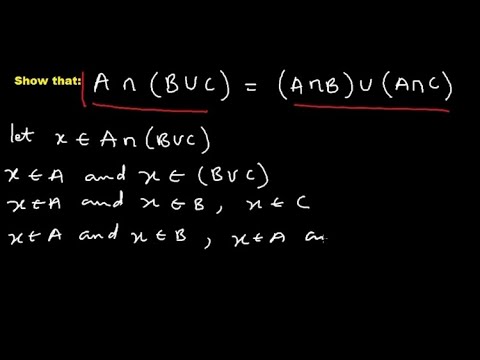 Show that: A ∩ (B ∪ C) = (A∩B) ∪ (A∩C)
let x ∈ A ∩ (B ∪ C)
x ∈ A and x ∈ (B ∪ C)
x ∈ A and x ∈ B , x ∈ C
x ∈ A and x ∈ B , x ∈ A an